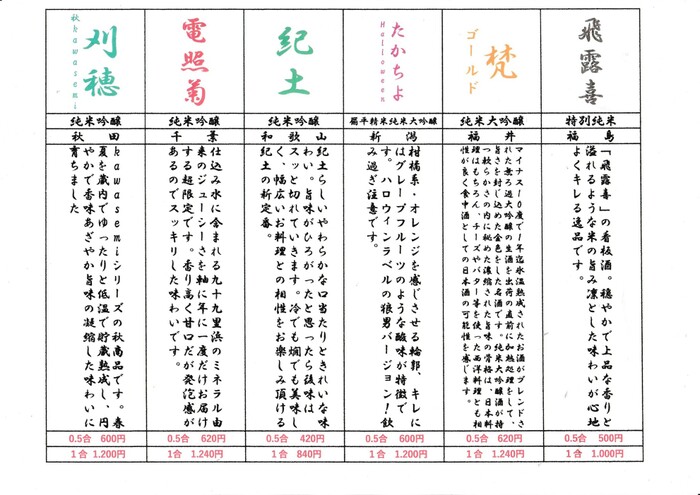 飛露喜
特別純米
福島
「飛露喜」の看板酒。穏やかで上品な香りと
溢れるような米の旨み凛とした味わいが心地
よくキレる逸品です。
0.5合 500円
1合 1.000円
ゴールド
梵
純米大吟醸
福井
マイナス10度で1年迄氷温熟成されたお酒がブレンドさ
れた無ろ過大吟醸の生酒を出荷の直前に加熱処理をして、
旨さを封じ込めた金色をした名酒です。純米大吟醸酒が持
つ軟らかさの内に秘めた濃縮された旨味の骨格は、日本料
理はもちろん、チーズやバター等を使った西洋料理とも相
性が良く食中酒としての日本酒の可能性を感じます。
0.5合 620円
1合 1.240円
たかちよ
Halloween
扁平精米純米大吟醸
新潟
柑橘系・オレンジを感じさせる輪郭、キレに
はグレープフルーツのような酸味が特徴で
す。ハロウィンラベルの狼男バージョン！飲
み過ぎ注意です。
0.5合 600円
1合 1.200円
紀土
純米吟醸
和歌山
紀土らしいやわらかな口当たりときれいな味
わい。旨味がひろがったと思ったら後味は
スッと切れていきます。冷でも燗でも美味し
く、幅広いお料理との相性をお楽しみ頂ける
紀土の新定番。
0.5合 420円
1合 840円
電照菊
純米吟醸
千葉
仕込み水に含まれる九十九里浜のミネラル由
来のジューシーさを軸に年に一度だけお届け
する超限定です。香り高く甘口だが発泡感が
あるのでスッキリした味わいです。
0.5合 620円
1合 1.240円
刈穂
秋kawasemi
純米吟醸
秋田
kawasemiシリーズの秋商品です。春
夏を蔵内でゆったりと低温で貯蔵熟成し、円
やかで香味あざやか旨味の凝縮した味わいに
育ちました
0.5合 600円
1合 1.200円